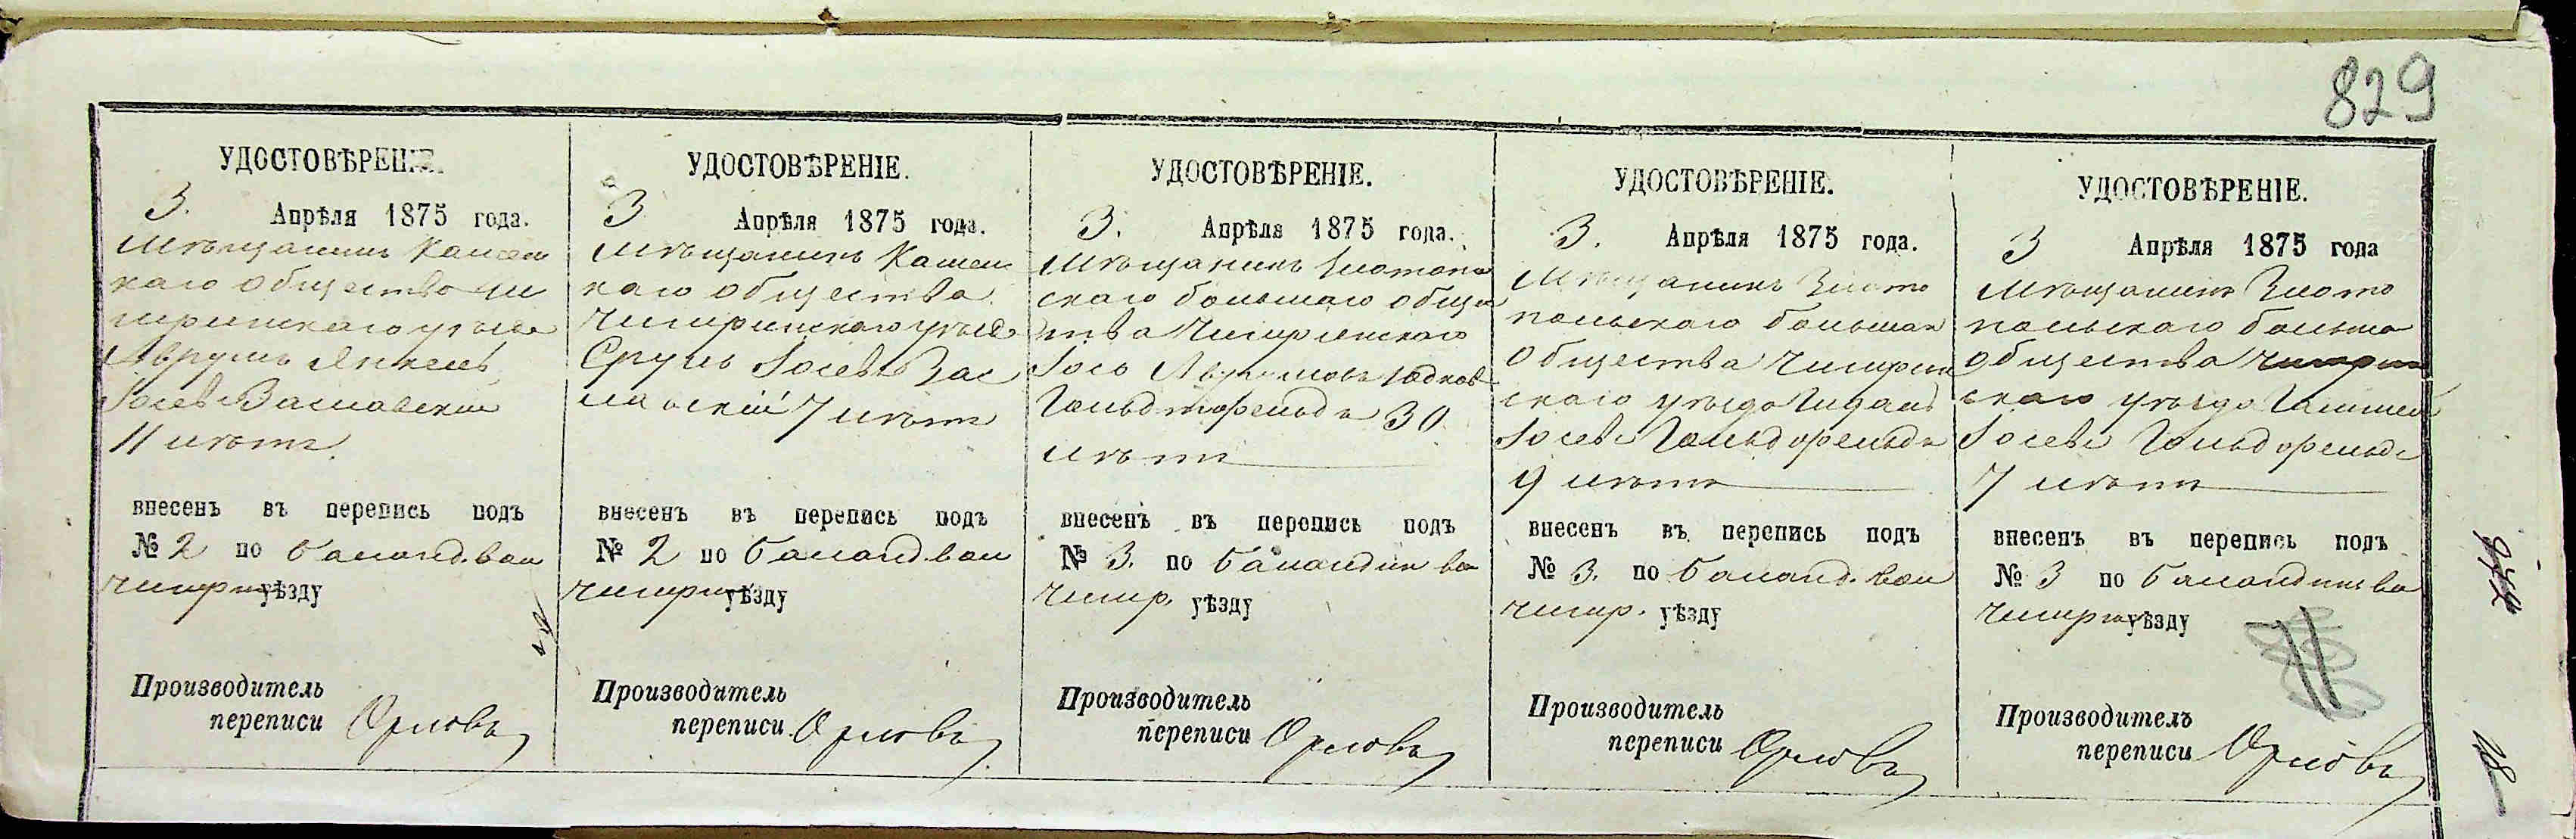 829
УДОСТОВѢРЕНІЕ.
3. Апрѣля 1875 года.
Мѣщанинъ Камен
каго общества Чи
гиринскаго уѣзда
Аврумъ Янкель
Іосевъ Заславскій
11 лѣтъ
внесенъ въ перепись подъ
№ 2 по Баланд. вол
Чигирин уѣзду
Производитель
переписи Орловъ
УДОСТОВѢРЕНІЕ.
3 Апрѣля 1875 года.
Мѣщанинъ Камен
каго общества
Чигиринскаго уѣзда
Сруль Іосевъ Зас
лавскій 7 лѣтъ
внесенъ въ перепись подъ
№ 2 по Баланд. вол
Чигирин уѣзду
Производитель
переписи Орловъ
УДОСТОВѢРЕНІЕ.
3. Апрѣля 1875 года.
Мѣщанинъ Златопо
скаго большаго общес
тва Чигиринскаго
Іось Аврумовъ
Гольдфельдъ 30
лѣтъ
внесенъ въ перепись подъ
№ 3. по Баландин во
Чигир. уѣзду
Производитель
переписи Орловъ
УДОСТОВѢРЕНІЕ.
3. Апрѣля 1875 года.
Мѣщанинъ Злато
польскаго большаго
общества Чигирин
скаго уѣзда
Іосевъ Гольдфельдъ
9 лѣтъ
внесенъ въ перепись подъ
№ 3. по Баланд. вол
Чигир. уѣзду
Производитель
переписи Орловъ
УДОСТОВѢРЕНІЕ.
3 Апрѣля 1875 года
Мѣщанинъ Злато
польскаго больша
общества Чигирин
скаго уѣзда
Іосевъ Гольдфельдъ
7 лѣтъ
внесенъ въ перепись подъ
№ 3 по Баландин во
Чигирин уѣзду
Производитель
переписи Орловъ